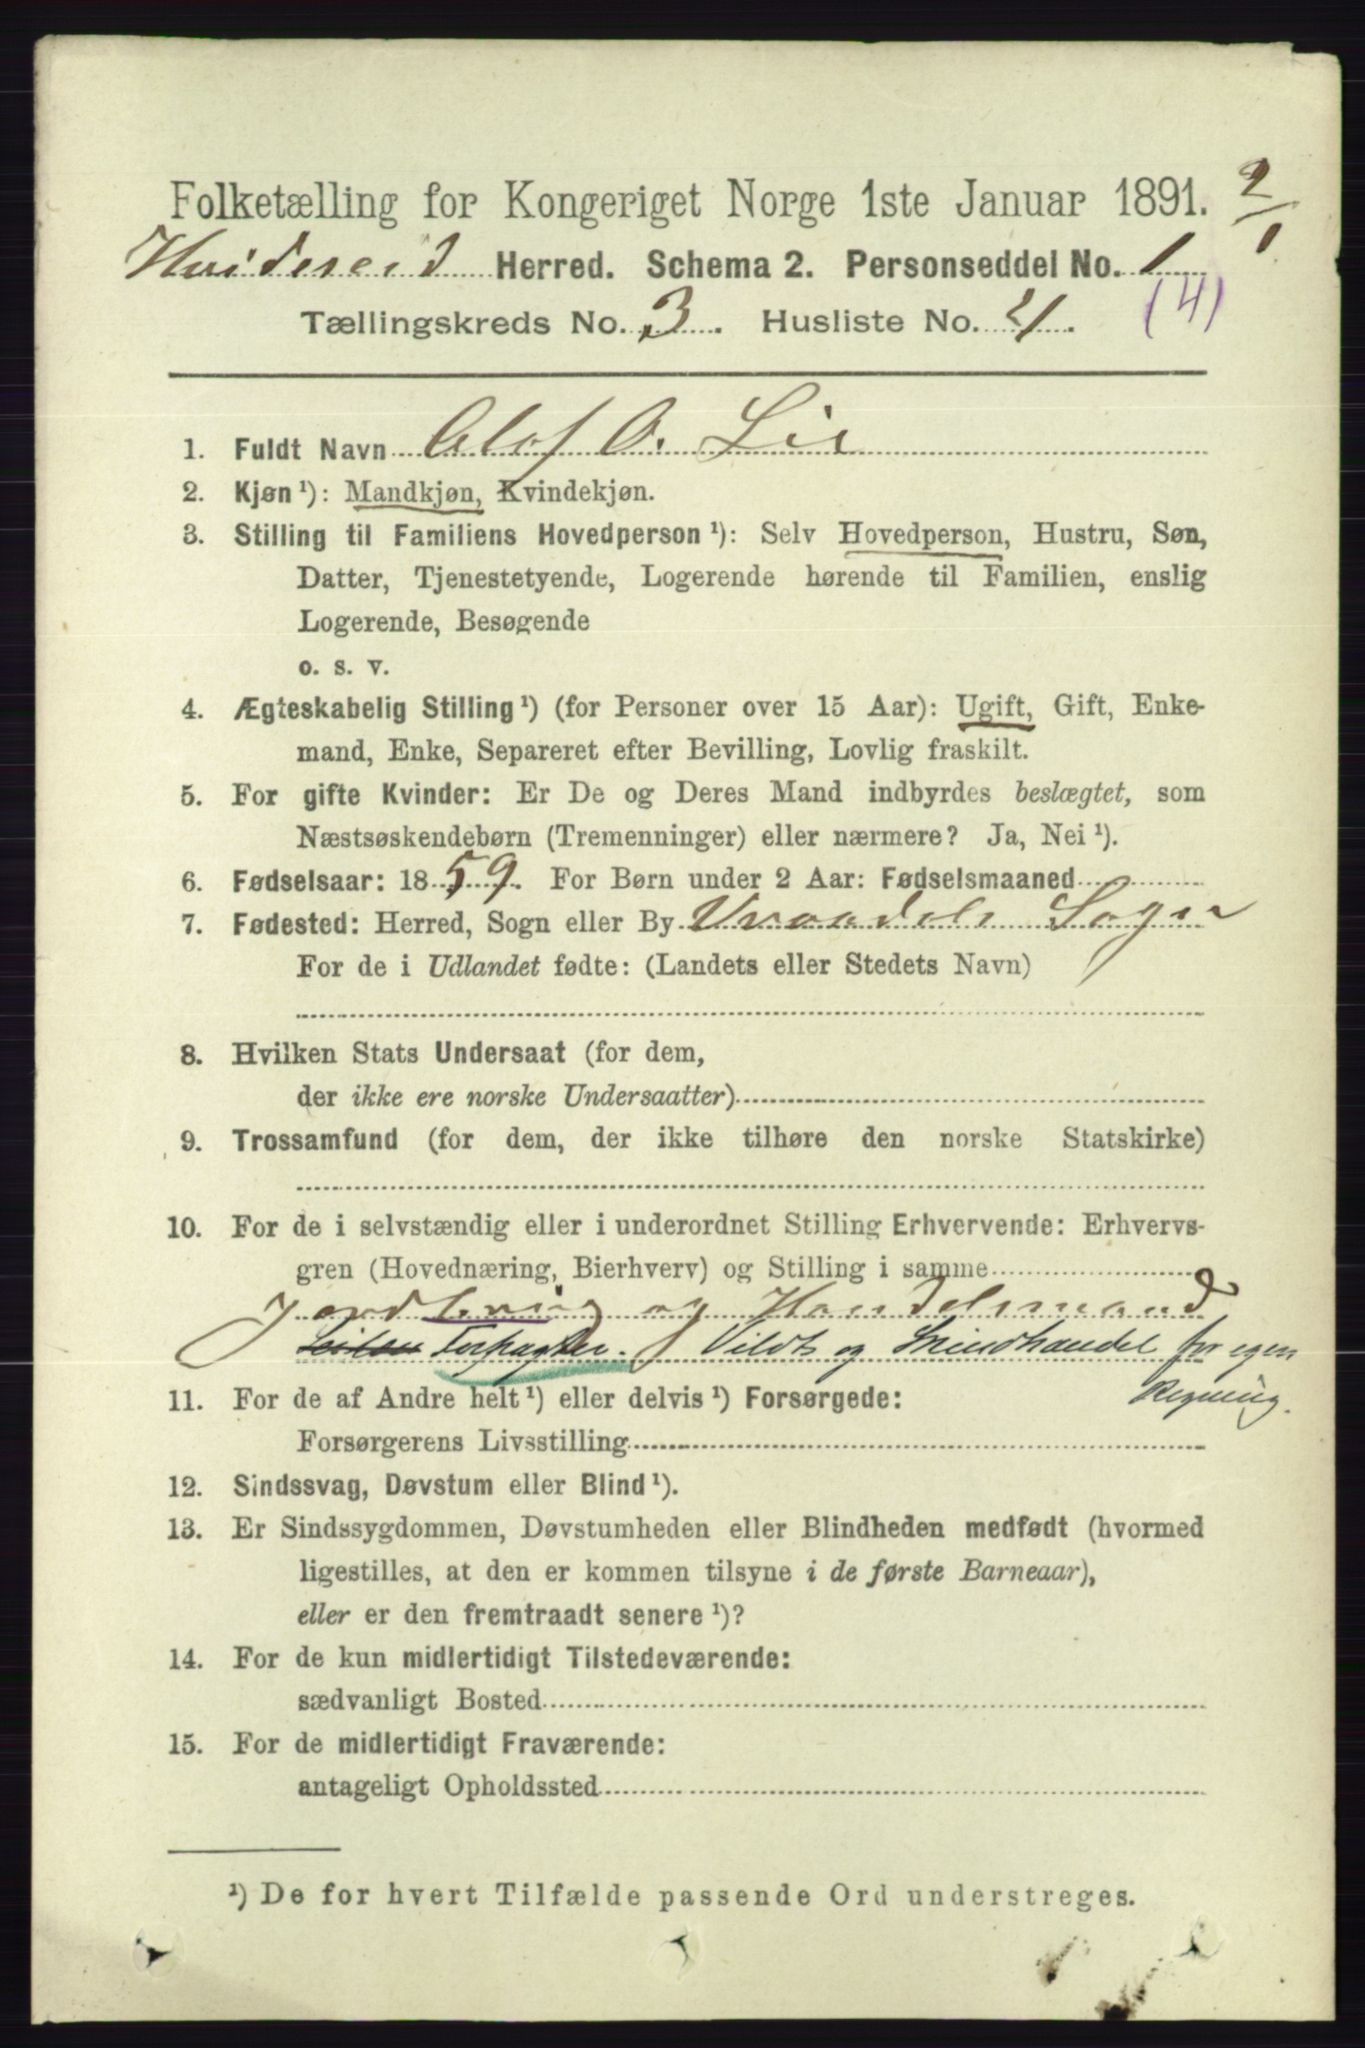 Folketælling for Kongeriget Norge 1ste Januar 1891. 2/1
Hvideseid Herred. Schema 2. Personseddel No. 1
Tællingskreds No. 3. Husliste No. 4. (4)
1. Fuldt Navn Olof O. Lie
2. Kjøn ¹): Mandkjøn, Kvindekjøn.
3. Stilling til Familiens Hovedperson ¹): Selv Hovedperson, Hustru, Søn,
Datter, Tjenestetyende, Logerende hørende til Familien, enslig
Logerende, Besøgende
o. s. v.
4. Ægteskabelig Stilling ¹) (for Personer over 15 Aar): Ugift, Gift, Enke-
mand, Enke, Separeret efter Bevilling, Lovlig fraskilt.
5. For gifte Kvinder: Er De og Deres Mand indbyrdes beslægtet, som
Næstsøskendebørn (Tremenninger) eller nærmere? Ja, Nei ¹).
6. Fødselsaar: 1859. For Børn under 2 Aar: Fødselsmaaned
7. Fødested: Herred, Sogn eller By Vraadals Sogn
For de i Udlandet fødte: (Landets eller Stedets Navn)
8. Hvilken Stats Undersaat (for dem,
der ikke ere norske Undersaatter)
9. Trossamfund (for dem, der ikke tilhøre den norske Statskirke)
10. For de i selvstændig eller i underordnet Stilling Erhvervende: Erhvervs-
gren (Hovednæring, Bierhverv) og Stilling i samme
og Handelsmand
Forpagter. Vildt og Skindhandel for egen
Regning.
11. For de af Andre helt ¹) eller delvis ¹) Forsørgede:
Forsørgerens Livsstilling
12. Sindssvag, Døvstum eller Blind ¹).
13. Er Sindssygdommen, Døvstumheden eller Blindheden medfødt (hvormed
ligestilles, at den er kommen tilsyne i de første Barneaar),
eller er den fremtraadt senere ¹)?
14. For de kun midlertidigt Tilstedeværende:
sædvanligt Bosted
15. For de midlertidigt Fraværende:
antageligt Opholdssted
¹) De for hvert Tilfælde passende Ord understreges.